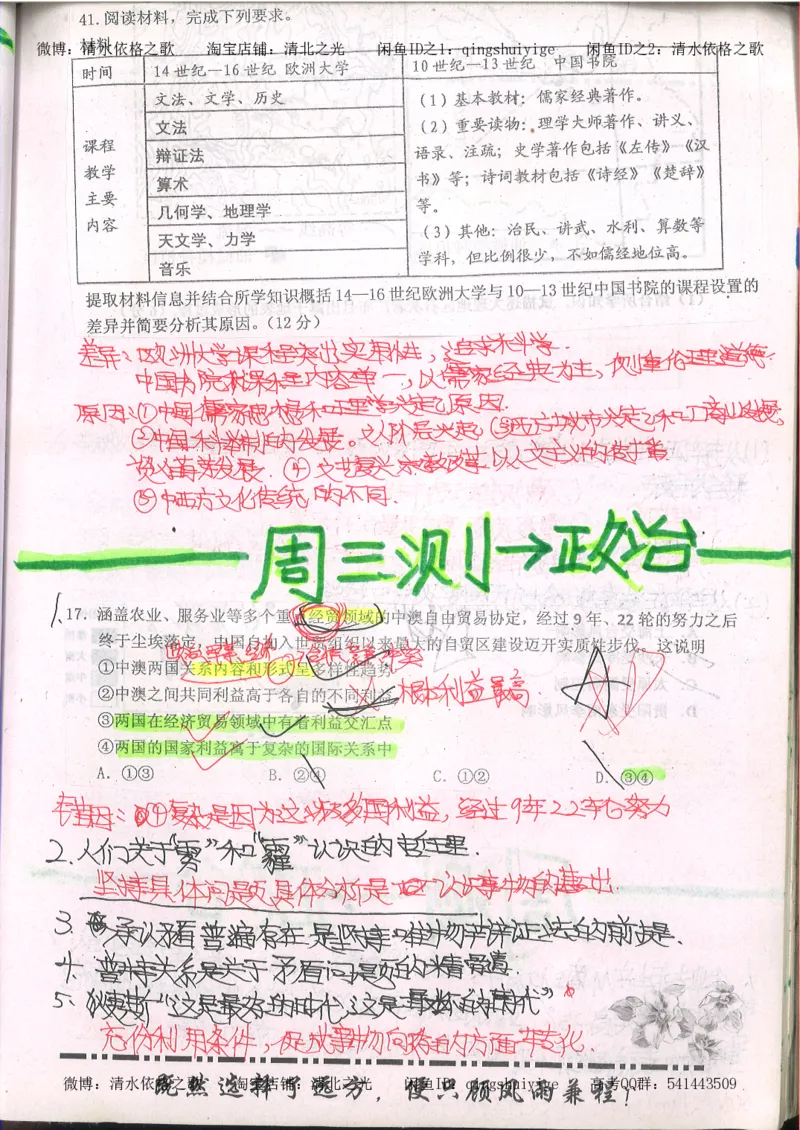 41. 阅读材料，完成下列要求。
材料
微博：清水依格之歌 淘宝店铺：清北之光 闲鱼ID之1：qingshuiyige 闲鱼ID之2：清水依格之歌
时间 14世纪—16世纪 欧洲大学 10世纪—13世纪 中国书院
课程教学主要内容
文法、文学、历史
文法
辩证法
算术
几何学、地理学
天文学、力学
音乐
（1）基本教材：儒家经典著作。
（2）重要读物：理学大师著作、讲义、
语录、注疏；史学著作包括《左传》《汉
书》等；诗词教材包括《诗经》《楚辞》
等。
（3）其他：治民、讲武、水利、算数等
学科，但比例很少，不如儒经地位高。
提取材料信息并结合所学知识概括 14—16 世纪欧洲大学与 10—13 世纪中国书院的课程设置的
差异并简要分析其原因。（12 分）
差异：欧洲大学课程突出实用性，追求科学.
中国书院课程内容单一，以儒家经典为主，侧重伦理道德.
原因：①中国儒家思想和理学兴起
②中国科举制的发展. ③西方城市兴起和工商业发展
④文艺复兴 以人文主义的
⑤中西方文化传统的不同.
周三测→政治
1. 17. 涵盖农业、服务业等多个重点经贸领域的中澳自由贸易协定，经过 9 年、22 轮的努力之后
终于尘埃落定，中国自加入世贸组织以来最大的自贸区建设迈开实质性步伐。这说明
①中澳两国关系内容和形式呈多样性趋势
②中澳之间共同利益高于各自的不同利益 根本利益最高.
③两国在经济贸易领域中有着利益交汇点
④两国的国家利益寓于复杂的国际关系中
A. ①③ B. ②④ C. ①② D. ③④
④复杂是因为这涉及多国利益，经过9年22轮努力
2. 人们关于“雾”和“霾”认识的
坚持具体问题具体分析是 认识事物的
3. 承认矛盾普遍存在是坚持唯物辩证法的前提.
4. 普特关系是关于矛盾问题的精髓.
5. “这是最好的时代，这是最坏的时代”
充份利用条件，促成事物向 的方面转化.
微博：清水依格之歌 淘宝店铺：清北之光 闲鱼ID：qingshuiyige 高考QQ群：541443509
既然选择了远方，便只顾风雨兼程！